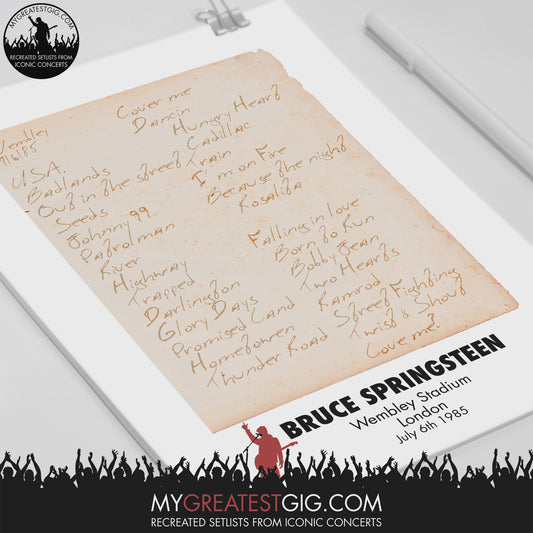 MYGREATESTGIG.COM
RECREATED SETLISTS FROM
ICONIC CONCERTS
Wembley
7/6/85
U.S.A.
Badlands
Out in the street
Seeds
Johnny 99
Patrolman
River
Highway
Trapped
Darlington
Glory Days
Promised Land
Hometowen
Thunder Road
Cover me
Dancin
Hungry Heart
Cadillac
Train
I'm on Fire
Because the night
Rosalita
Falling in love
Born to Run
Bobby Jean
Two Hearts
Ramrod
Street Fighting
Twist & Shout
Love me?
BRUCE SPRINGSTEEN
Wembley Stadium
London
July 6th 1985
MYGREATESTGIG.COM
RECREATED SETLISTS FROM ICONIC CONCERTS